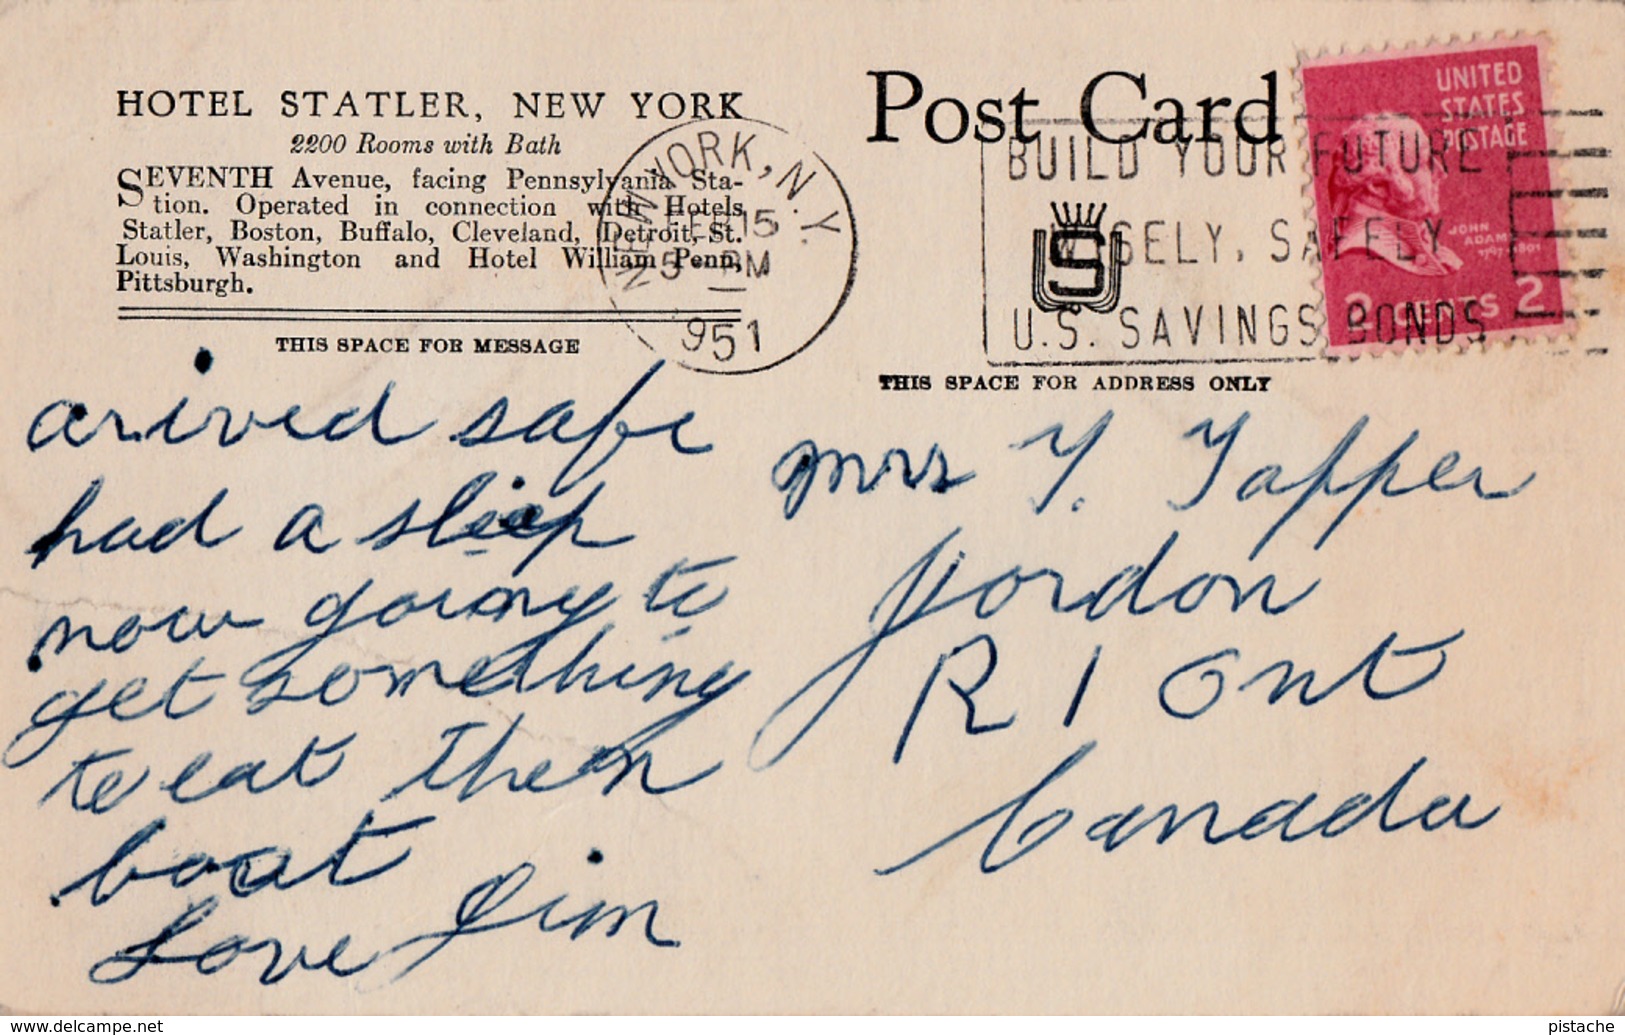 HOTEL STATLER, NEW YORK
2200 Rooms with Bath
SEVENTH Avenue, facing Pennsylvania Sta-
tion. Operated in connection with Hotels
Statler, Boston, Buffalo, Cleveland, Detroit, St.
Louis, Washington and Hotel William Penn,
Pittsburgh.
THIS SPACE FOR MESSAGE
arived safe
had a sleep
now going to
get something
to eat then
boat
Love Jim
NEW YORK, N.Y.
FEB 15
5 PM
1951
Post Card
BUILD YOUR FUTURE
WISELY, SAFELY
U.S. SAVINGS BONDS
US
UNITED
STATES
POSTAGE
JOHN
ADAMS
1797 1801
2 CENTS 2
THIS SPACE FOR ADDRESS ONLY
Mrs Y. Tapper
Jordon
R 1 Ont
Canada
www.delcampe.net
pistache